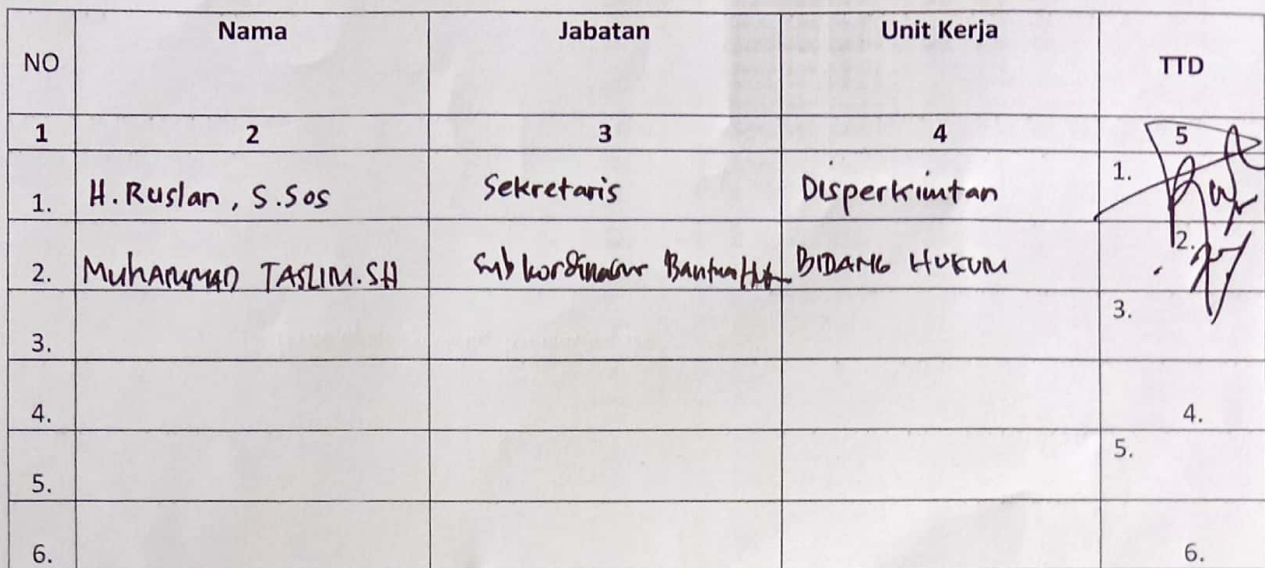 NO Nama Jabatan Unit Kerja TTD
1 2 3 4 5
1. H. Ruslan, S.Sos Sekretaris Disperkimtan 1.
2. MuhAMMAD TASLIM.SH Sub kordinator Bantuan BIDANG HUKUM 2.
3. 3.
4. 4.
5. 5.
6. 6.